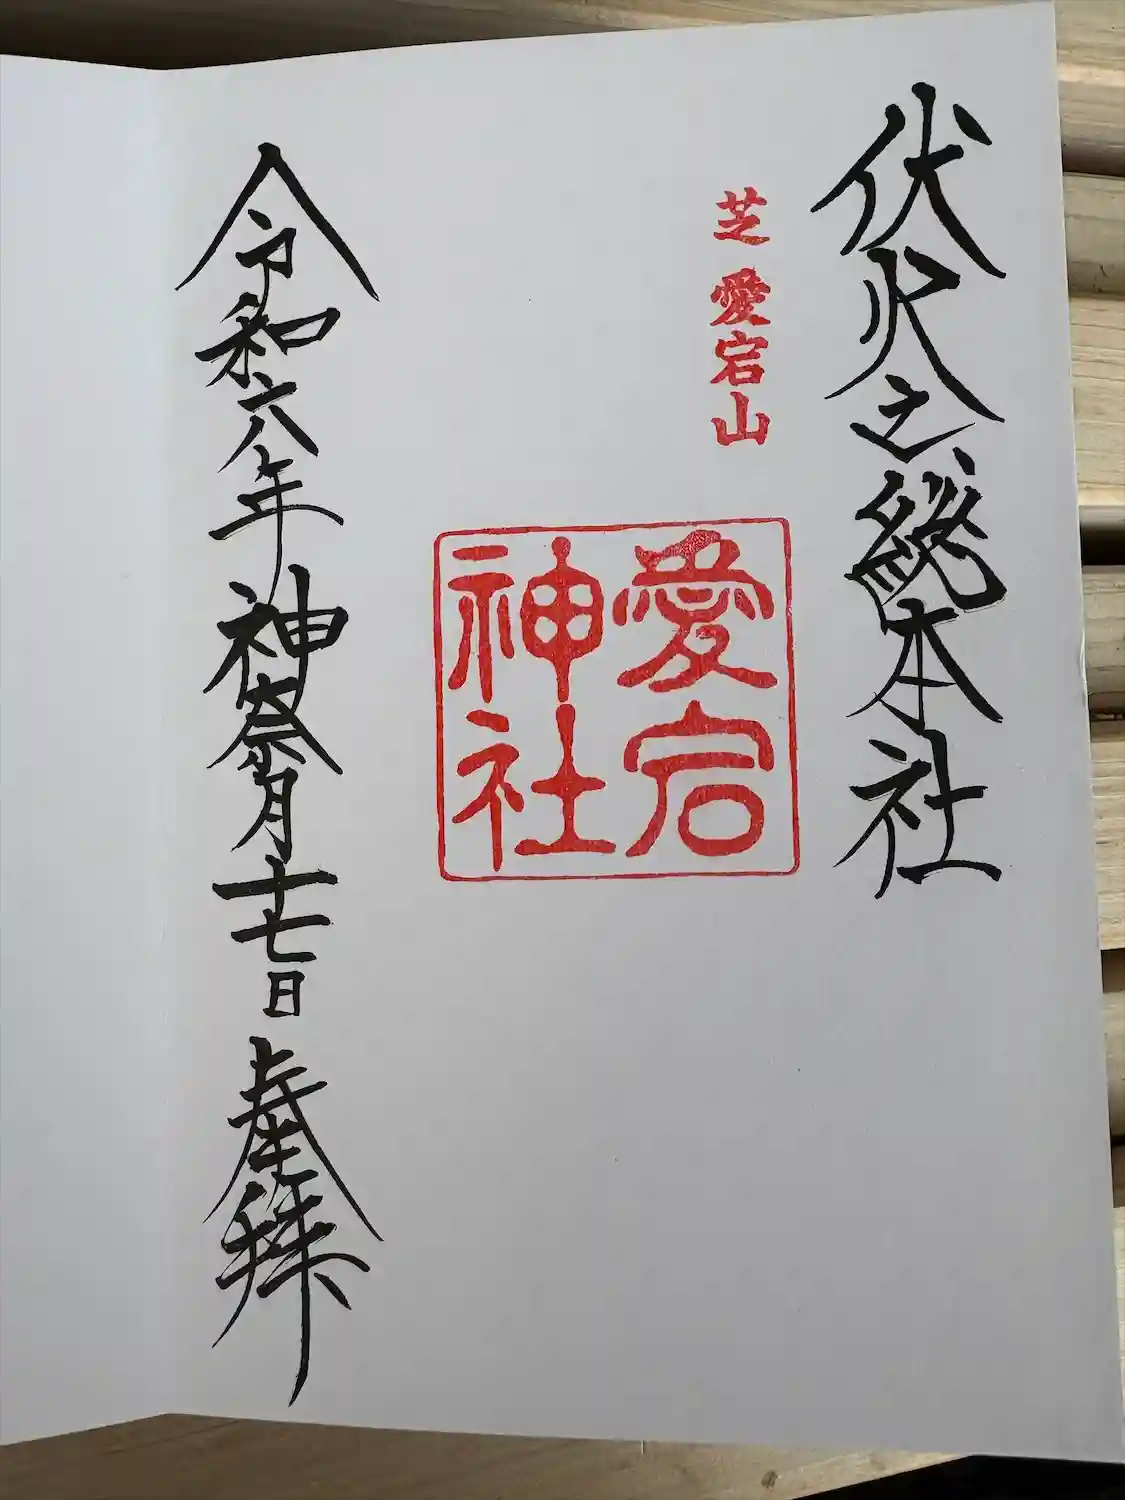 伏火之総本社
芝 愛宕山
愛宕
神社
令和六年神奈月十七日 奉拝